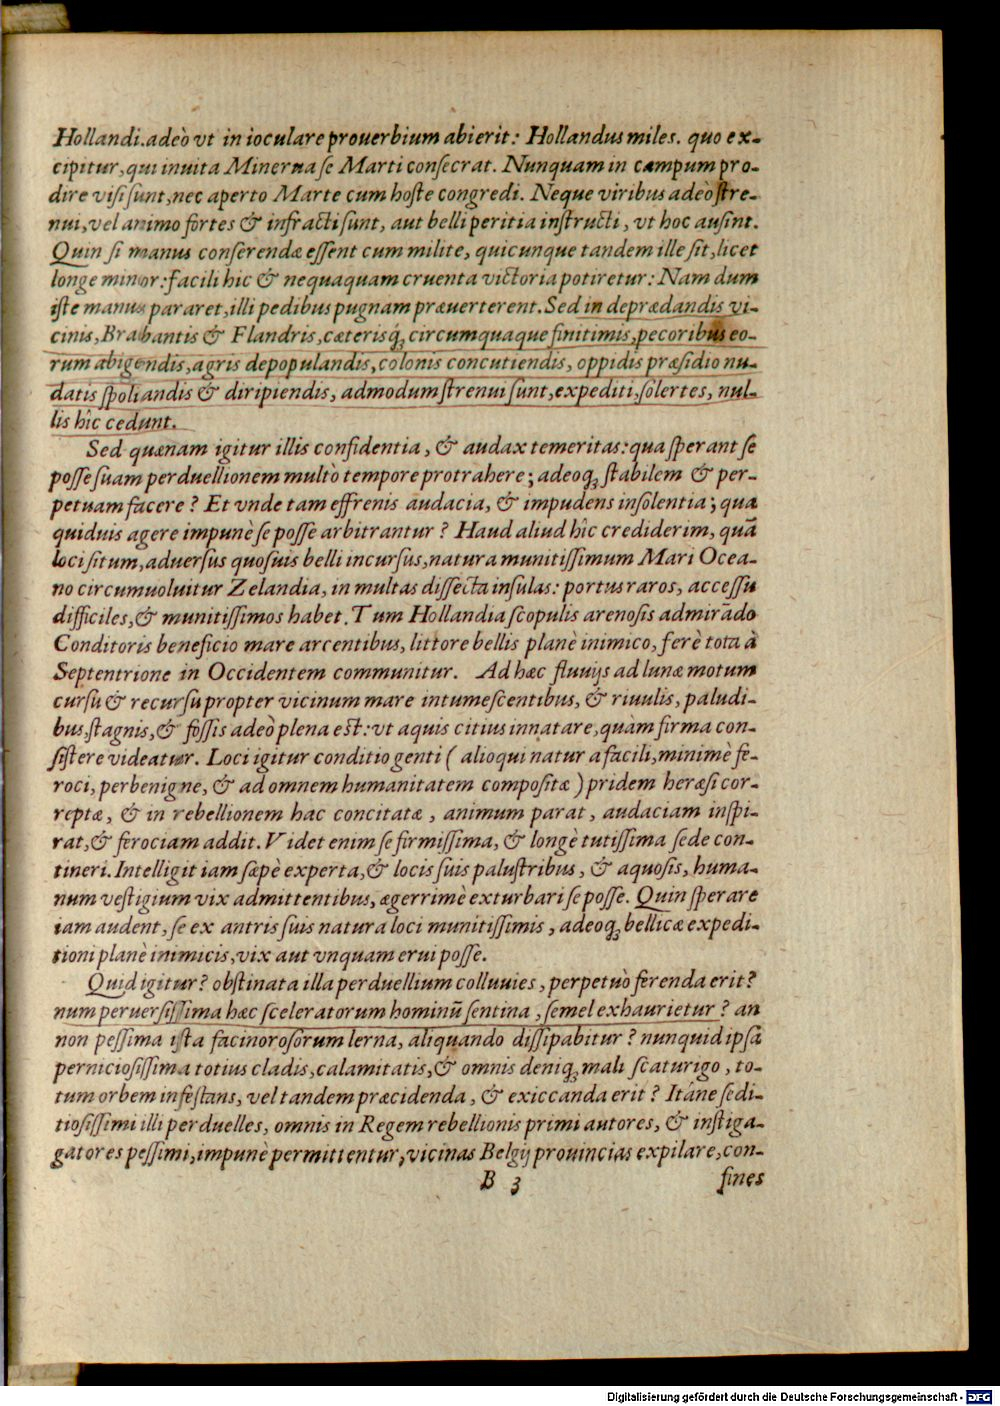 Hollandi. adeò vt in ioculare prouerbium abierit: Hollandus miles. quo ex-
cipitur, qui inuita Minerua se Marti consecrat. Nunquam in campum pro-
dire visi sunt, nec aperto Marte cum hoste congredi. Neque viribus adeò stre-
nui, vel animo fortes & infracti sunt, aut belli peritia instructi, vt hoc ausint.
Quin si manus conserendæ essent cum milite, quicunque tandem ille sit, licet
longe minor: facili hic & nequaquam cruenta victoria potiretur: Nam dum
iste manus pararet, illi pedibus pugnam præuerterent. Sed in deprædandis vi-
cinis, Brabantis & Flandris, cæterisq́; circumquaque finitimis, pecoribus eo-
rum abigendis, agris depopulandis, colonis concutiendis, oppidis præsidio nu-
datis spoliandis & diripiendis, admodum strenui sunt, expediti, solertes, nul-
lis hîc cedunt.
Sed quænam igitur illis confidentia, & audax temeritas: qua sperant se
posse suam perduellionem multò tempore protrahere; adeoq; stabilem & per-
petuam facere? Et vnde tam effrenis audacia, & impudens insolentia; qua
quiduis agere impunè se posse arbitrantur? Haud aliud hîc crediderim, quã
loci situm, aduersus quosuis belli incursus, natura munitissimum Mari Ocea-
no circumuoluitur Zelandia, in multas dissecta insulas: portus raros, accessu
difficiles, & munitissimos habet. Tum Hollandia scopulis arenosis admirãdo
Conditoris beneficio mare arcentibus, littore bellis planè inimico, ferè tota à
Septentrione in Occidentem communitur. Ad hæc fluuijs ad lunæ motum
cursu & recursu propter vicinum mare intumescentibus, & riuulis, paludi-
bus, stagnis, & fossis adeò plena est: vt aquis citius innatare, quàm firma con-
sistere videatur. Loci igitur conditio genti ( alioqui natura facili, minimè fe-
roci, perbenigne, & ad omnem humanitatem compositæ ) pridem heræsi cor-
reptæ, & in rebellionem hac concitatæ, animum parat, audaciam inspi-
rat, & ferociam addit. Videt enim se firmissima, & longè tutissima sede con-
tineri. Intelligit iam sæpè experta, & locis suis palustribus, & aquosis, huma-
num vestigium vix admittentibus, ægerrimè exturbari se posse. Quin sperare
iam audent, se ex antris suis natura loci munitissimis, adeoq; bellicæ expedi-
tioni planè inimicis, vix aut vnquam erui posse.
Quid igitur? obstinata illa perduellium colluuies, perpetuò ferenda erit?
num peruersissima hæc sceleratorum hominũ sentina, semel exhaurietur? an
non pessima ista facinorosorum lerna, aliquando dissipabitur? nunquid ipsã
perniciosissima totius cladis, calamitatis, & omnis deniq; mali scaturigo, to-
tum orbem infestans, vel tandem præcidenda, & exiccanda erit? Itáne sedi-
tiosissimi illi perduelles, omnis in Regem rebellionis primi autores, & instiga-
gatores pessimi, impunè permittentur, vicinas Belgij prouincias expilare, con-
B 3 fines
Digitalisierung gefördert durch die Deutsche Forschungsgemeinschaft - DFG